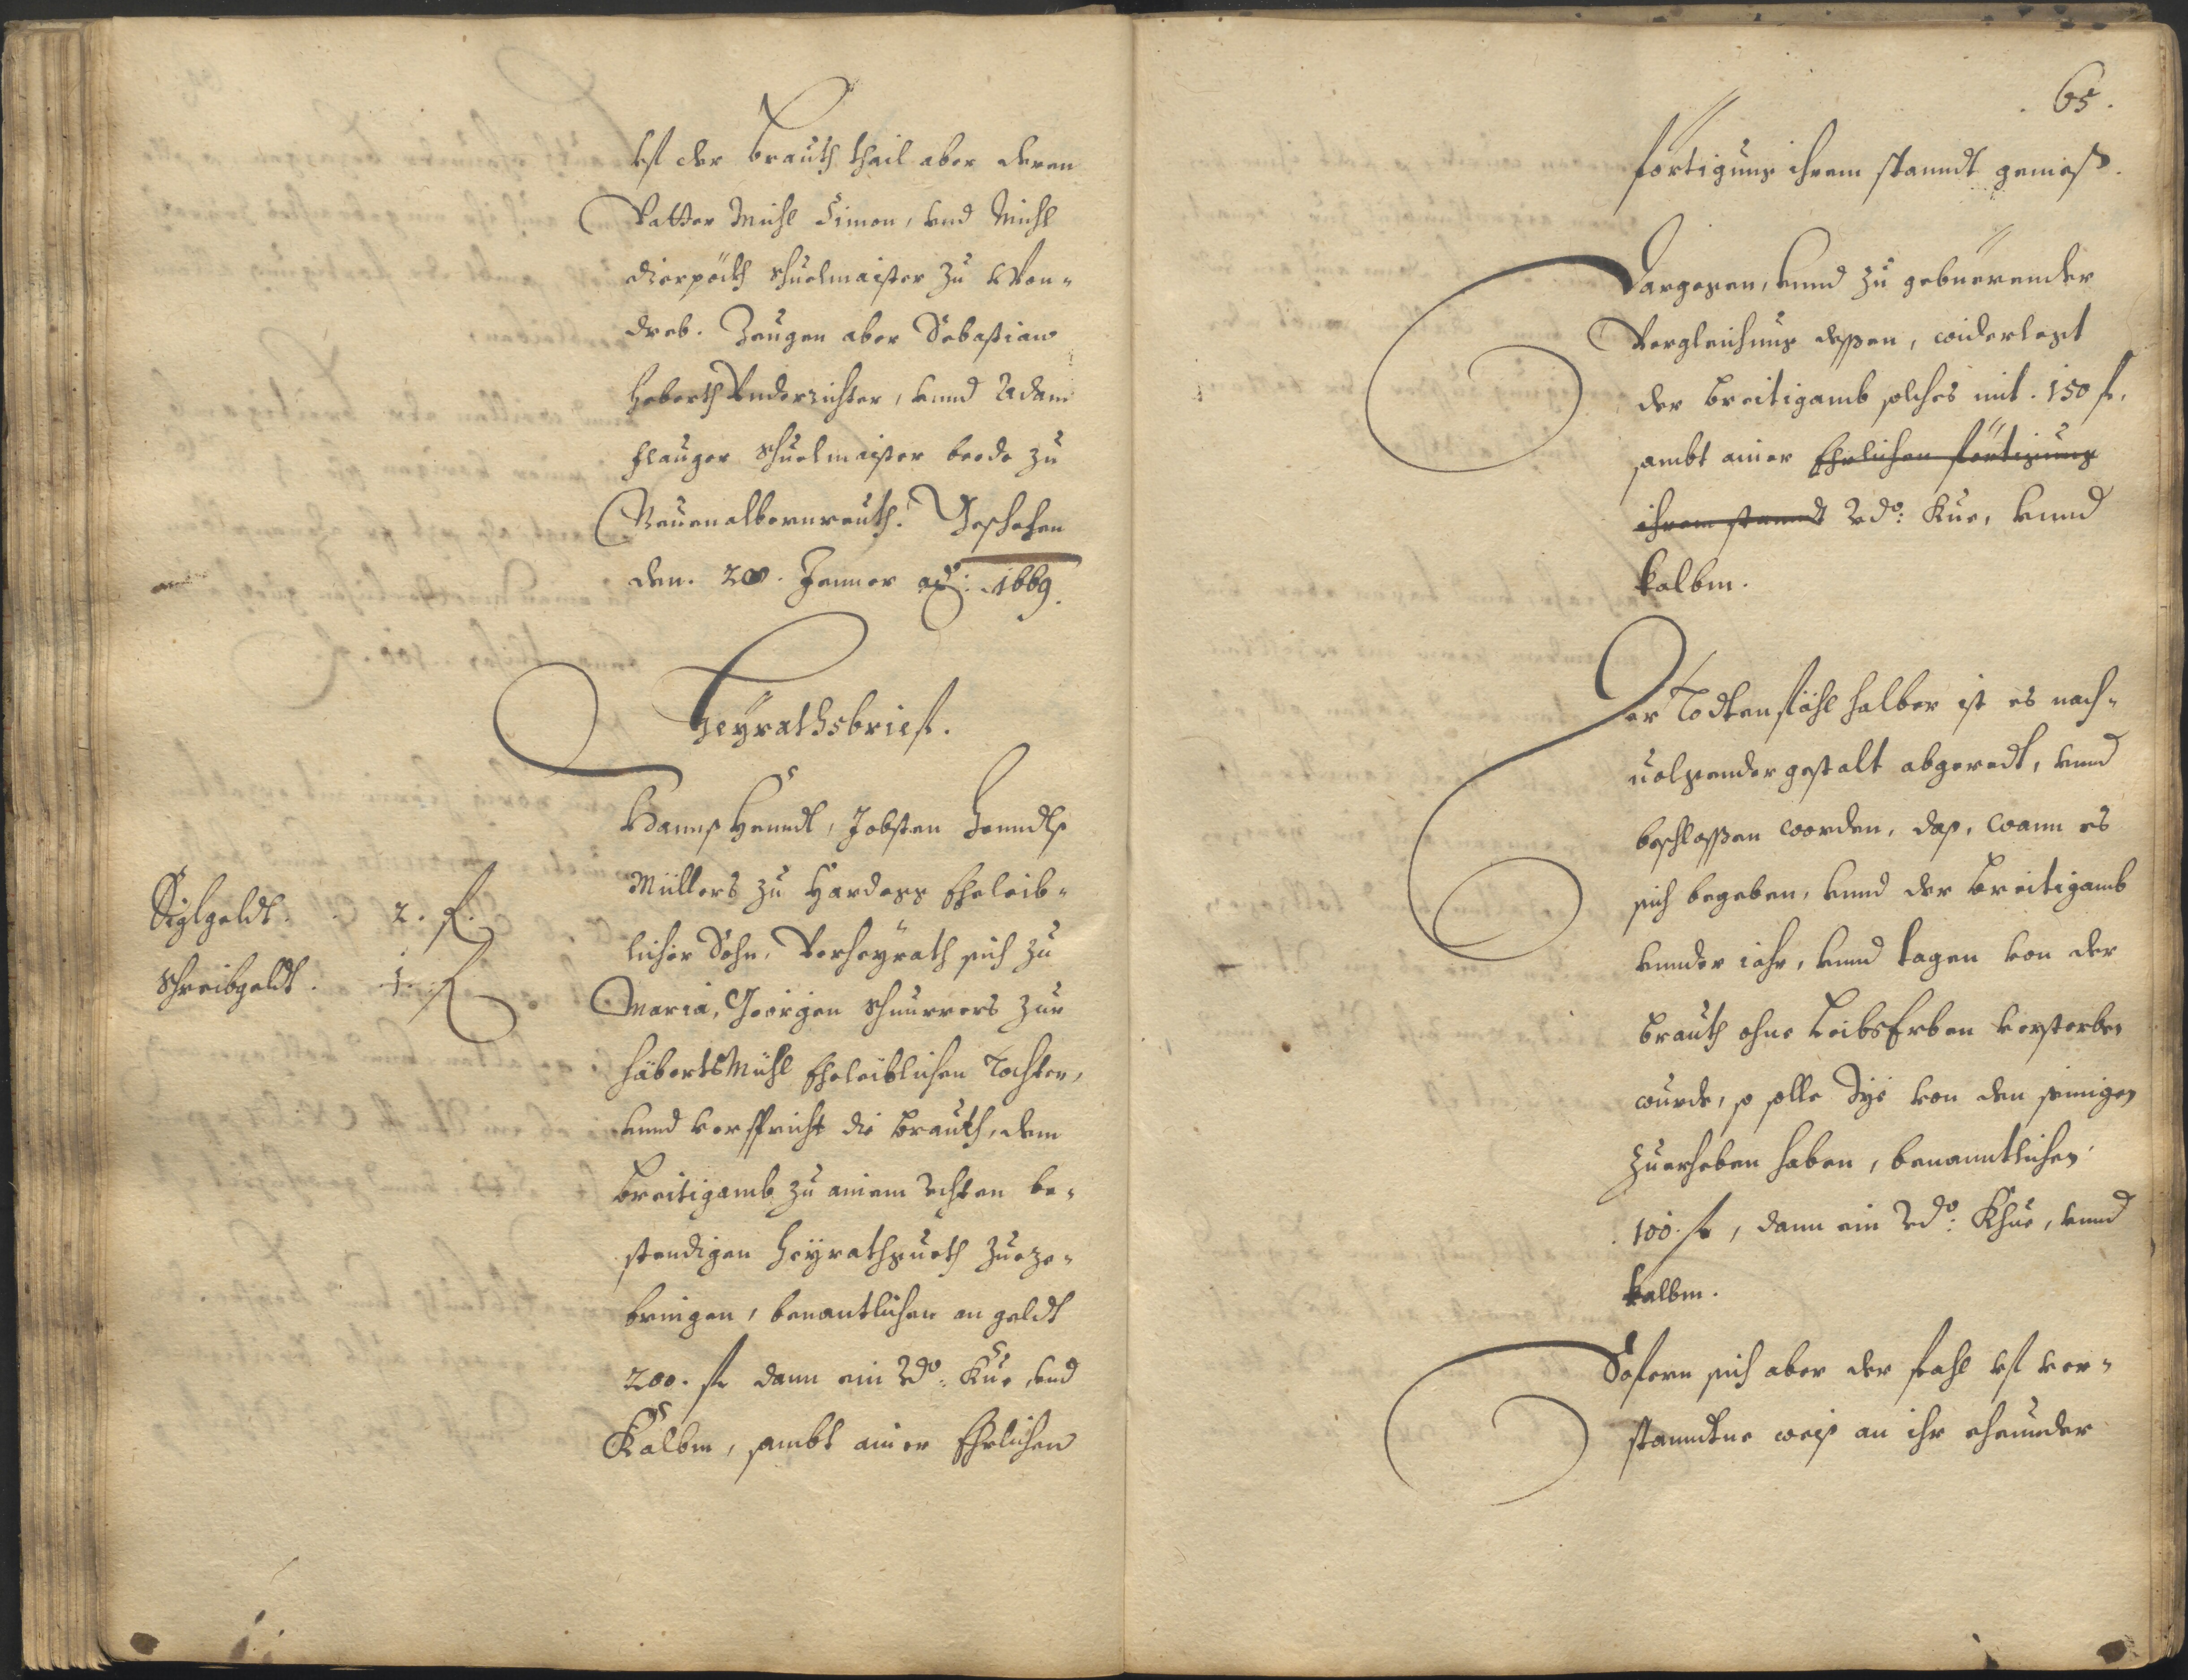 vf der Brauth thail aber deren
Vatter Michl Simon, vnd Michl
Dierpöckh Schuelmaister zu Won-
dreb. Zeugen aber Sebastian
Heberth Vnderrichter, vnnd Adam
Flauger Schuelmaister beede zu
Neuenalbernreuth. Geschehen
den. 28. Jenner ao: 1669.
Heyrathsbrief.
Hannß Henndl, Jobsten Henndls
Müllers zu Hardegg Eheleib-
Siglgeldt. 2. fl.
licher Sohn, Verheyrath sich zu
Schreibgeldt. 1. fl
Maria, Geörgen Schnurrers zur
HäbertsMühl Eheleiblichen Tochter,
vnnd verspricht die Brauth, dem
Breitigamb zu ainem rechten be-
stendigen Heyrathgueth zueze-
bringen, benantlichen an geldt
200. fl dann ein rdo: Kue vnd
Kalben, sambt ainer Ehrlichen
65.
förtigung ihrem standt gemeß.
Dargegen, vnnd zu gebüerender
Vergleichung dessen, widerlegt
der Breitigamb solches mit. 150 fl.
sambt ainer Ehrlichen förtigung
ihrem standt rdo: Kue, vnnd
kalben.
Der Todtenfähl halber ist es nach-
uolgender gestalt abgeredt, vnnd
beschlossen worden, daß, wann es
sich begeben, vnnd der Breitigamb
vnnder iahr, vnnd tagen von der
Brauth ohne LeibsErben versterben
wurde, so solle Sye von den seinigen
zuerheben haben, benanntlichen
100. fl, dann ein rdo: Khue, vnnd
kalben.
Sofern sich aber der fahl vf ver-
standtne weiß an ihr ehennder